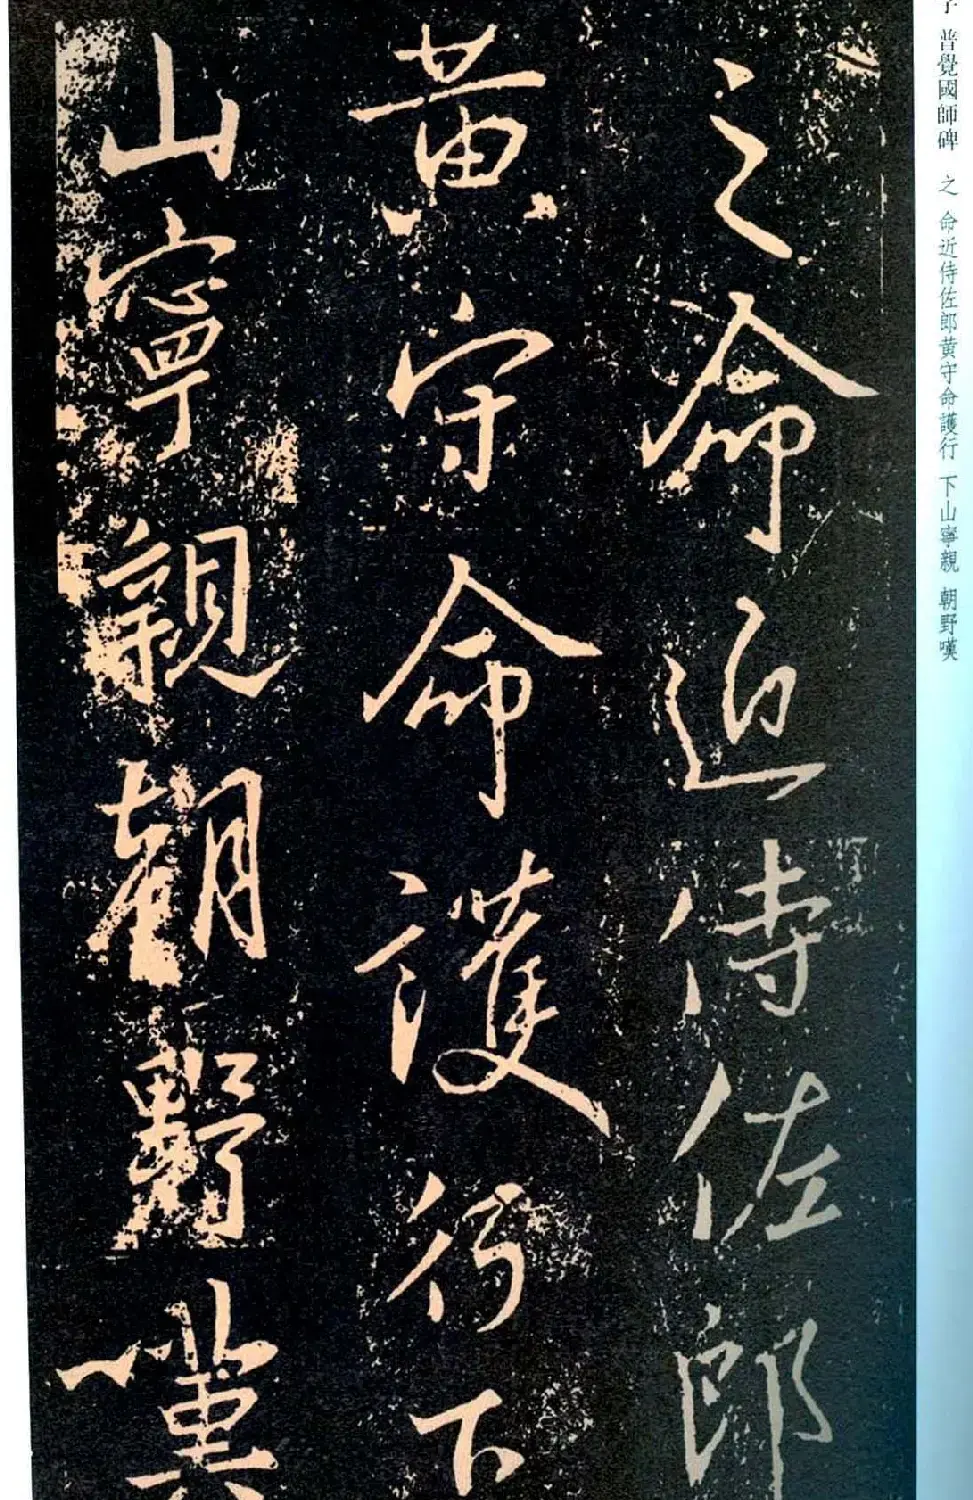 普覺國師碑 之 命近侍佐郎黄守命護行 下山寧親 朝野嘆
之命近侍佐郎
黄守命護行下
山寧親朝野冀